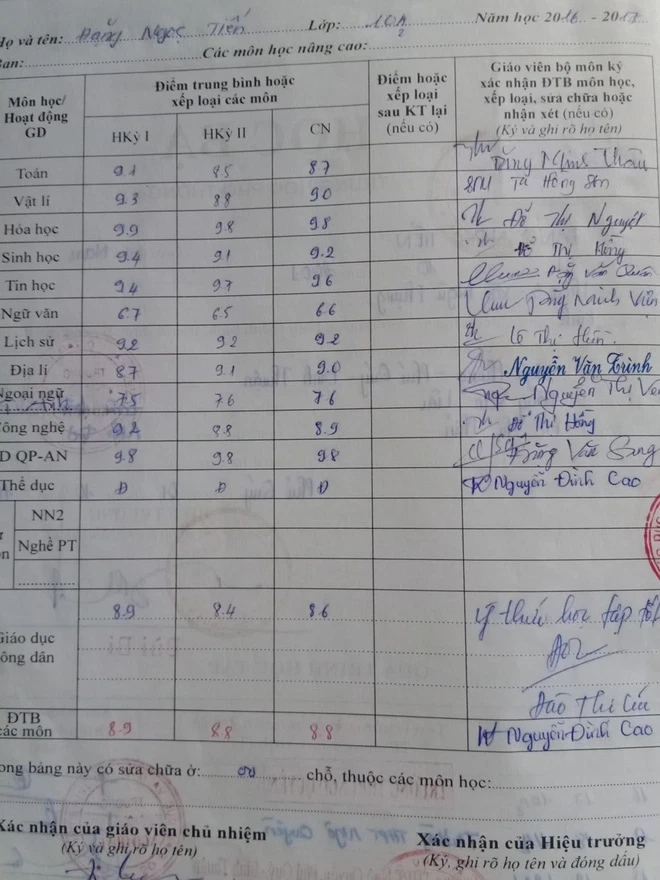 Họ và tên: Đặng Ngọc Tiến Lớp: 10A2 Năm học 2016 - 2017
Ban: Các môn học nâng cao:
Môn học/ Hoạt động GD
Điểm trung bình hoặc xếp loại các môn
Điểm hoặc xếp loại sau KT lại (nếu có)
Giáo viên bộ môn ký xác nhận ĐTB môn học, xếp loại, sửa chữa hoặc nhận xét (nếu có) (Ký và ghi rõ họ tên)
HKỳ I HKỳ II CN
Toán 9.1 8.5 8.7
Vật lí 9.3 8.8 9.0 Tạ Hồng Sơn
Hóa học 9.9 9.8 9.8 Đỗ Thị Nguyệt
Sinh học 9.4 9.1 9.2 Đỗ Thị Hồng
Tin học 9.4 9.7 9.6
Ngữ văn 6.7 6.5 6.6
Lịch sử 9.2 9.2 9.2 Lê Thị
Địa lí 8.7 9.1 9.0 Nguyễn Văn Trình
Ngoại ngữ 7.5 7.6 7.6 Nguyễn Thị
Công nghệ 9.2 8.8 8.9 Đỗ Thị Hồng
D QP-AN 9.8 9.8 9.8 Đặng Văn Sang
Thể dục Đ Đ Đ Nguyễn Đình Cao
NN2
Nghề PT
Giáo dục công dân 8.9 8.4 8.6 Ý thức học tập tốt
Đào Thị
ĐTB các môn 8.9 8.8 8.8 Nguyễn Đình Cao
ong bảng này có sửa chữa ở: chỗ, thuộc các môn học:
Xác nhận của giáo viên chủ nhiệm Xác nhận của Hiệu trưởng
(Ký và ghi rõ họ tên) (Ký, ghi rõ họ tên và đóng dấu)